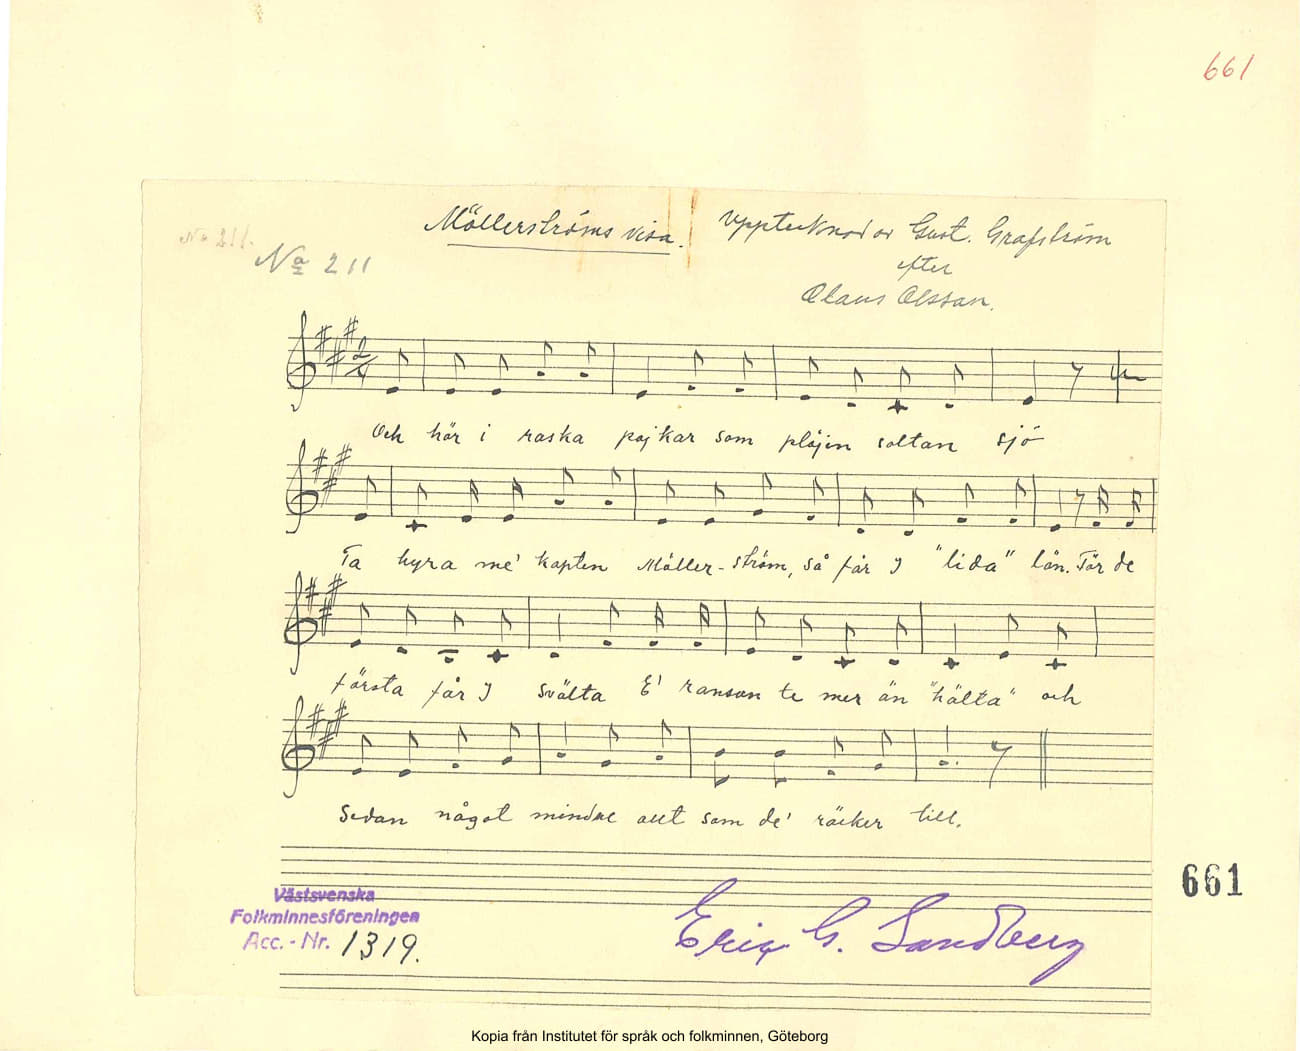 661
Möllerströms visa. Upptecknad av Gust. Grafström
No 211.
No 211
efter
Olaus Olssan.
2/4
Och hör i raska pojkar som plöjen saltan sjö
Ta hyra me' kapten Möller-ström, så får I "lida" lön. För de
första får I svälta E' ranson te mer än "hälta" och
Sedan något mindre allt som de' räcker till.
661
Västsvenska
Folkminnesföreningen
Acc.-Nr. 1319.
Eric G. Sandberg
Kopia från Institutet för språk och folkminnen, Göteborg